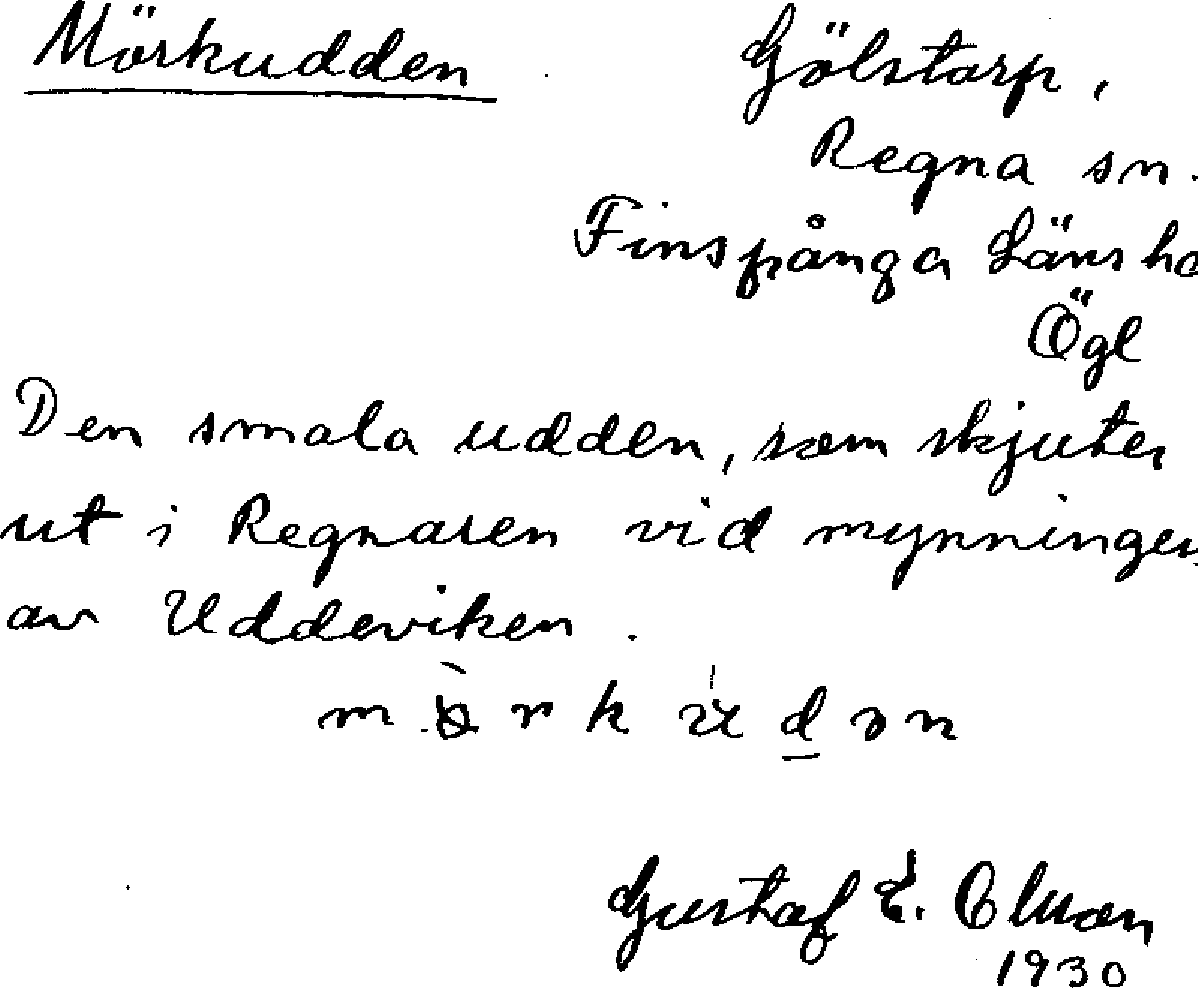 Mörkudden Gölstorp,
Regna sn.
Finspånga Länsh
Ögl
Den smala udden, som skjuter
ut i Regnaren vid mynningen
av Uddeviken.
Gustaf E. Olsson
1930